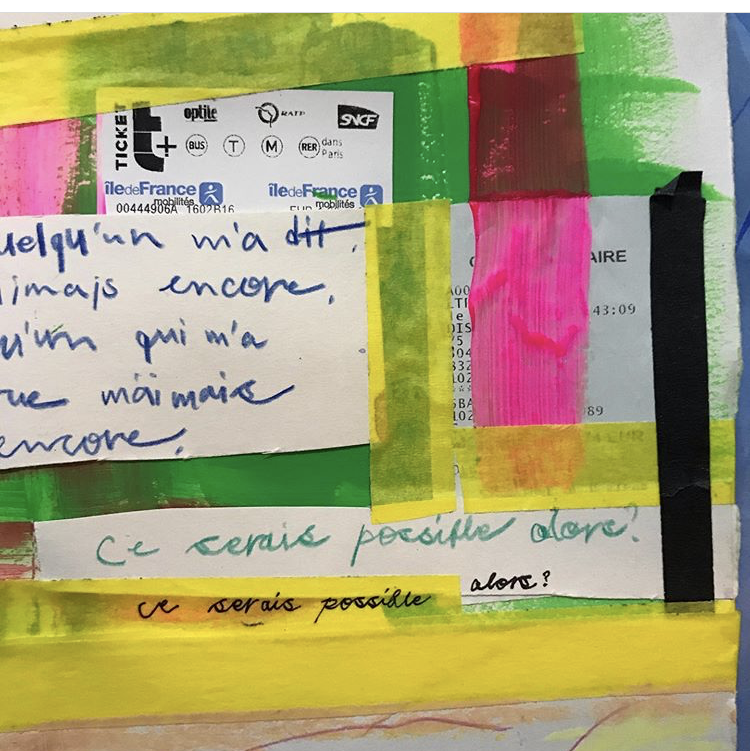 TICKET t+
optile RATP SNCF
BUS T M RER dans Paris
îledeFrance mobilités îledeFrance mobilités
00444906A 1602B16
uelqu'un m'a dit,
imais encore.
u'un qui m'a
que m'aimais
encore.
AIRE
43:09
102
102
89
EUR
ce serais possible alors?
ce serais possible alors?